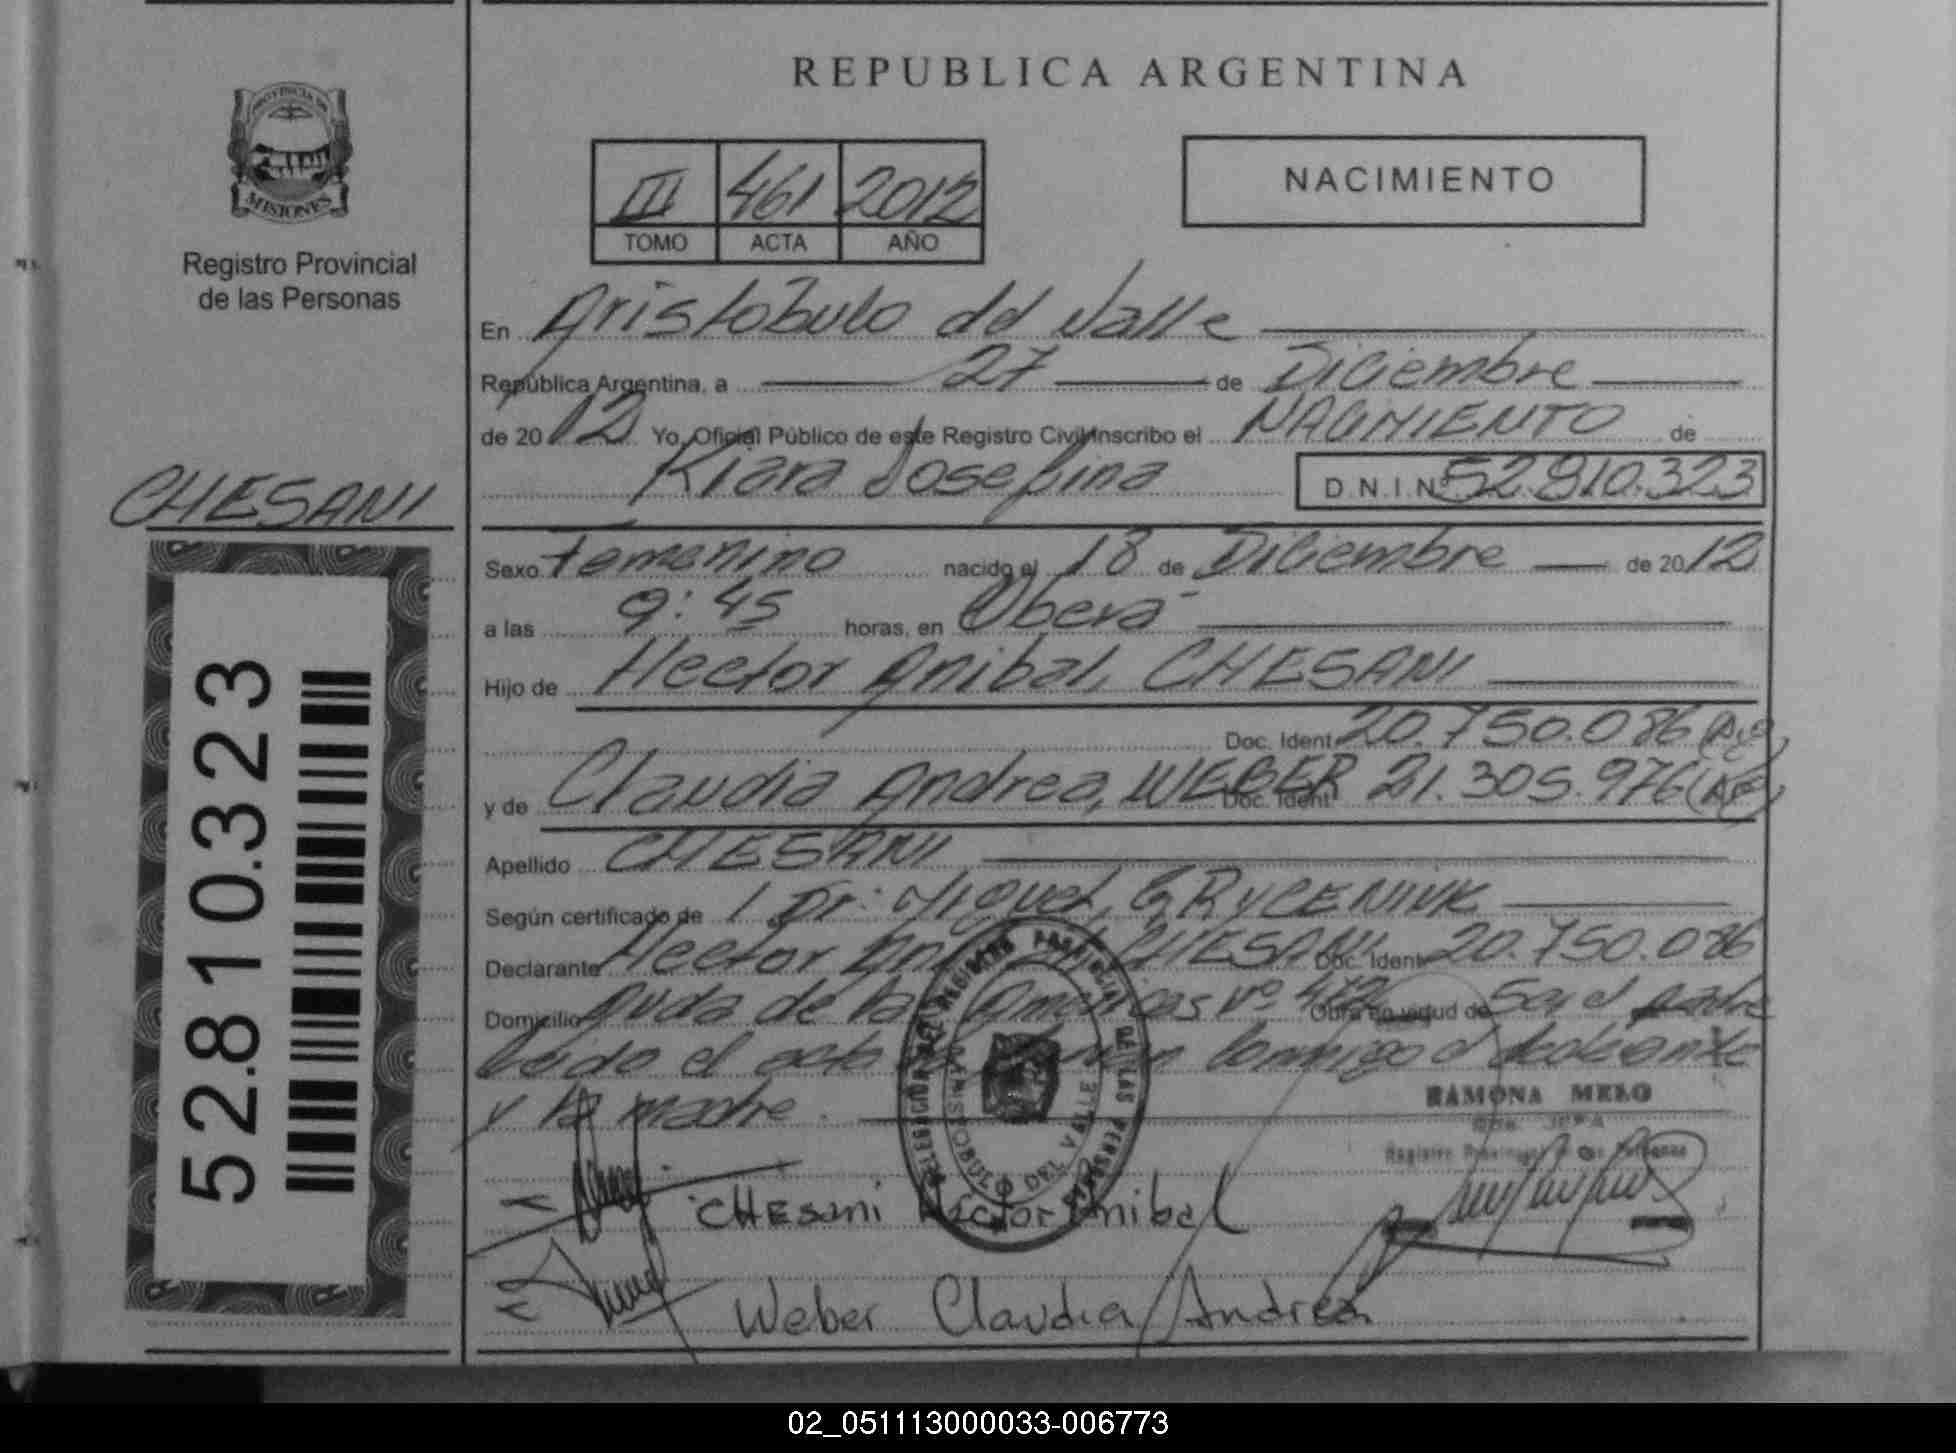 REPUBLICA ARGENTINA
PROVINCIA DE
MISIONES
Registro Provincial
de las Personas
III 461 2012
TOMO ACTA AÑO
NACIMIENTO
En Aristobulo del Valle
República Argentina, a 27 de Diciembre
de 2012 Yo, Oficial Público de este Registro Civil Inscribo el NACIMIENTO de
Kiara Josefina D.N.I.Nº 52.810.323
CHESANI
52.810.323
Sexo Femenino nacido el 18 de Diciembre de 2012
a las 9:45 horas, en Oberá
Hijo de Hector Anibal, CHESANI
Doc. Ident. 20.750.086
y de Claudia Andrea, WEBER Doc. Ident. 21.305.976
Apellido CHESANI
Según certificado de Dr. Miguel,
Declarante Hector CHESANI Doc. Ident. 20.750.086
Domicilio Avda de las Americas Nº 472 Obra en virtud de Ser el padre
Leido el acta conmigo el declarante
y la madre.
RAMONA MELO
Registro Provincial de las Personas
DELEGACION DEL REGISTRO PROVINCIAL DE LAS PERSONAS
ARISTOBULO DEL VALLE
CHESANI Hector Anibal
Weber Claudia Andrea
02_051113000033-006773